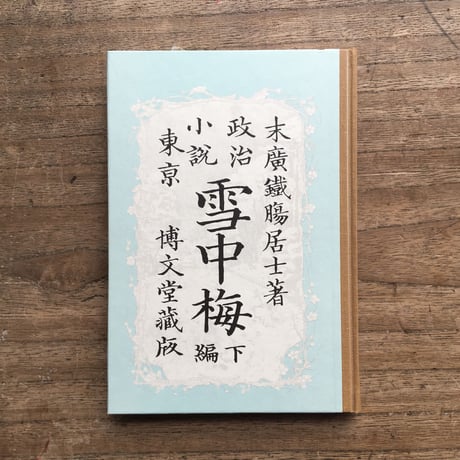 末廣鐵膓居士著
政治
小説
雪中梅
下
編
東京
博文堂藏版